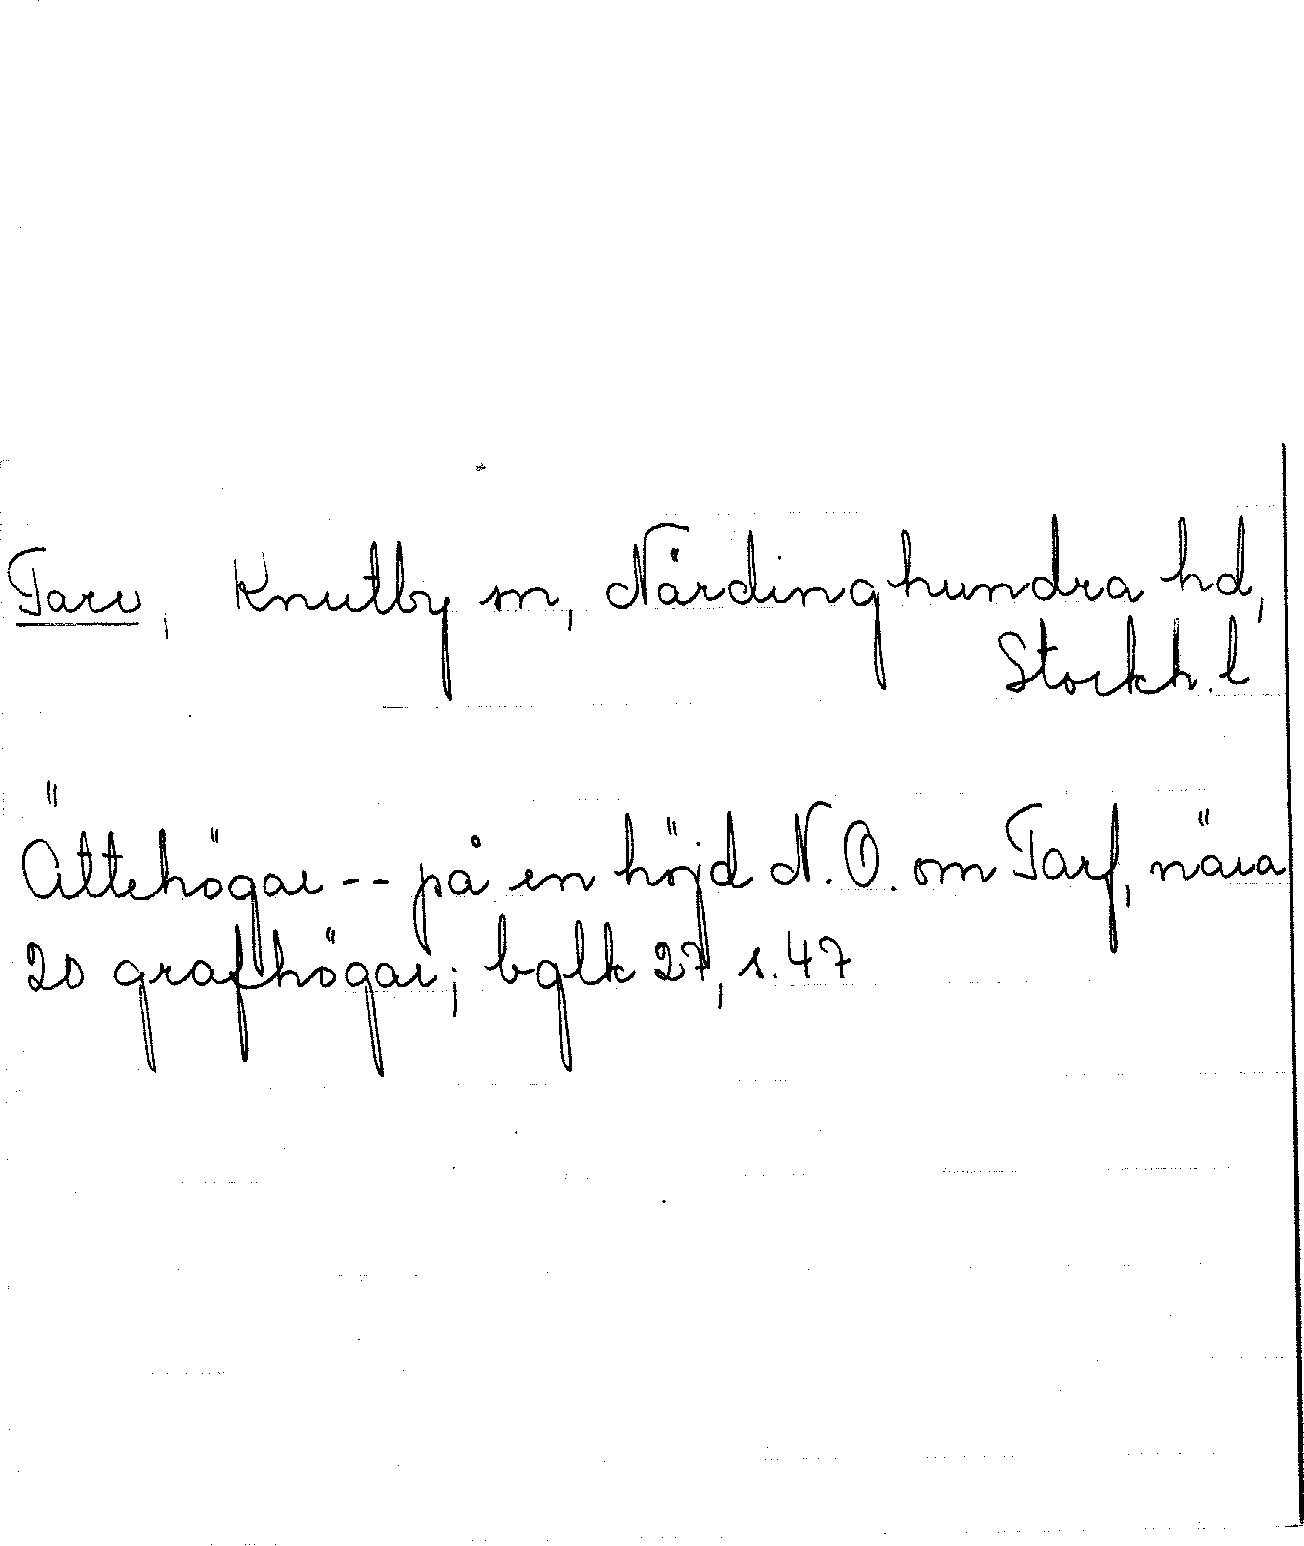 Tarv, Knutby sn, Närdinghundra hd,
Stockh. l
Ättehögar -- på en höjd N.O. om Tarf, nära
20 grafhögar; bglk 27, s. 47